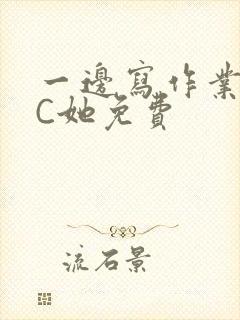 一邊寫作業
C她免費
流石景